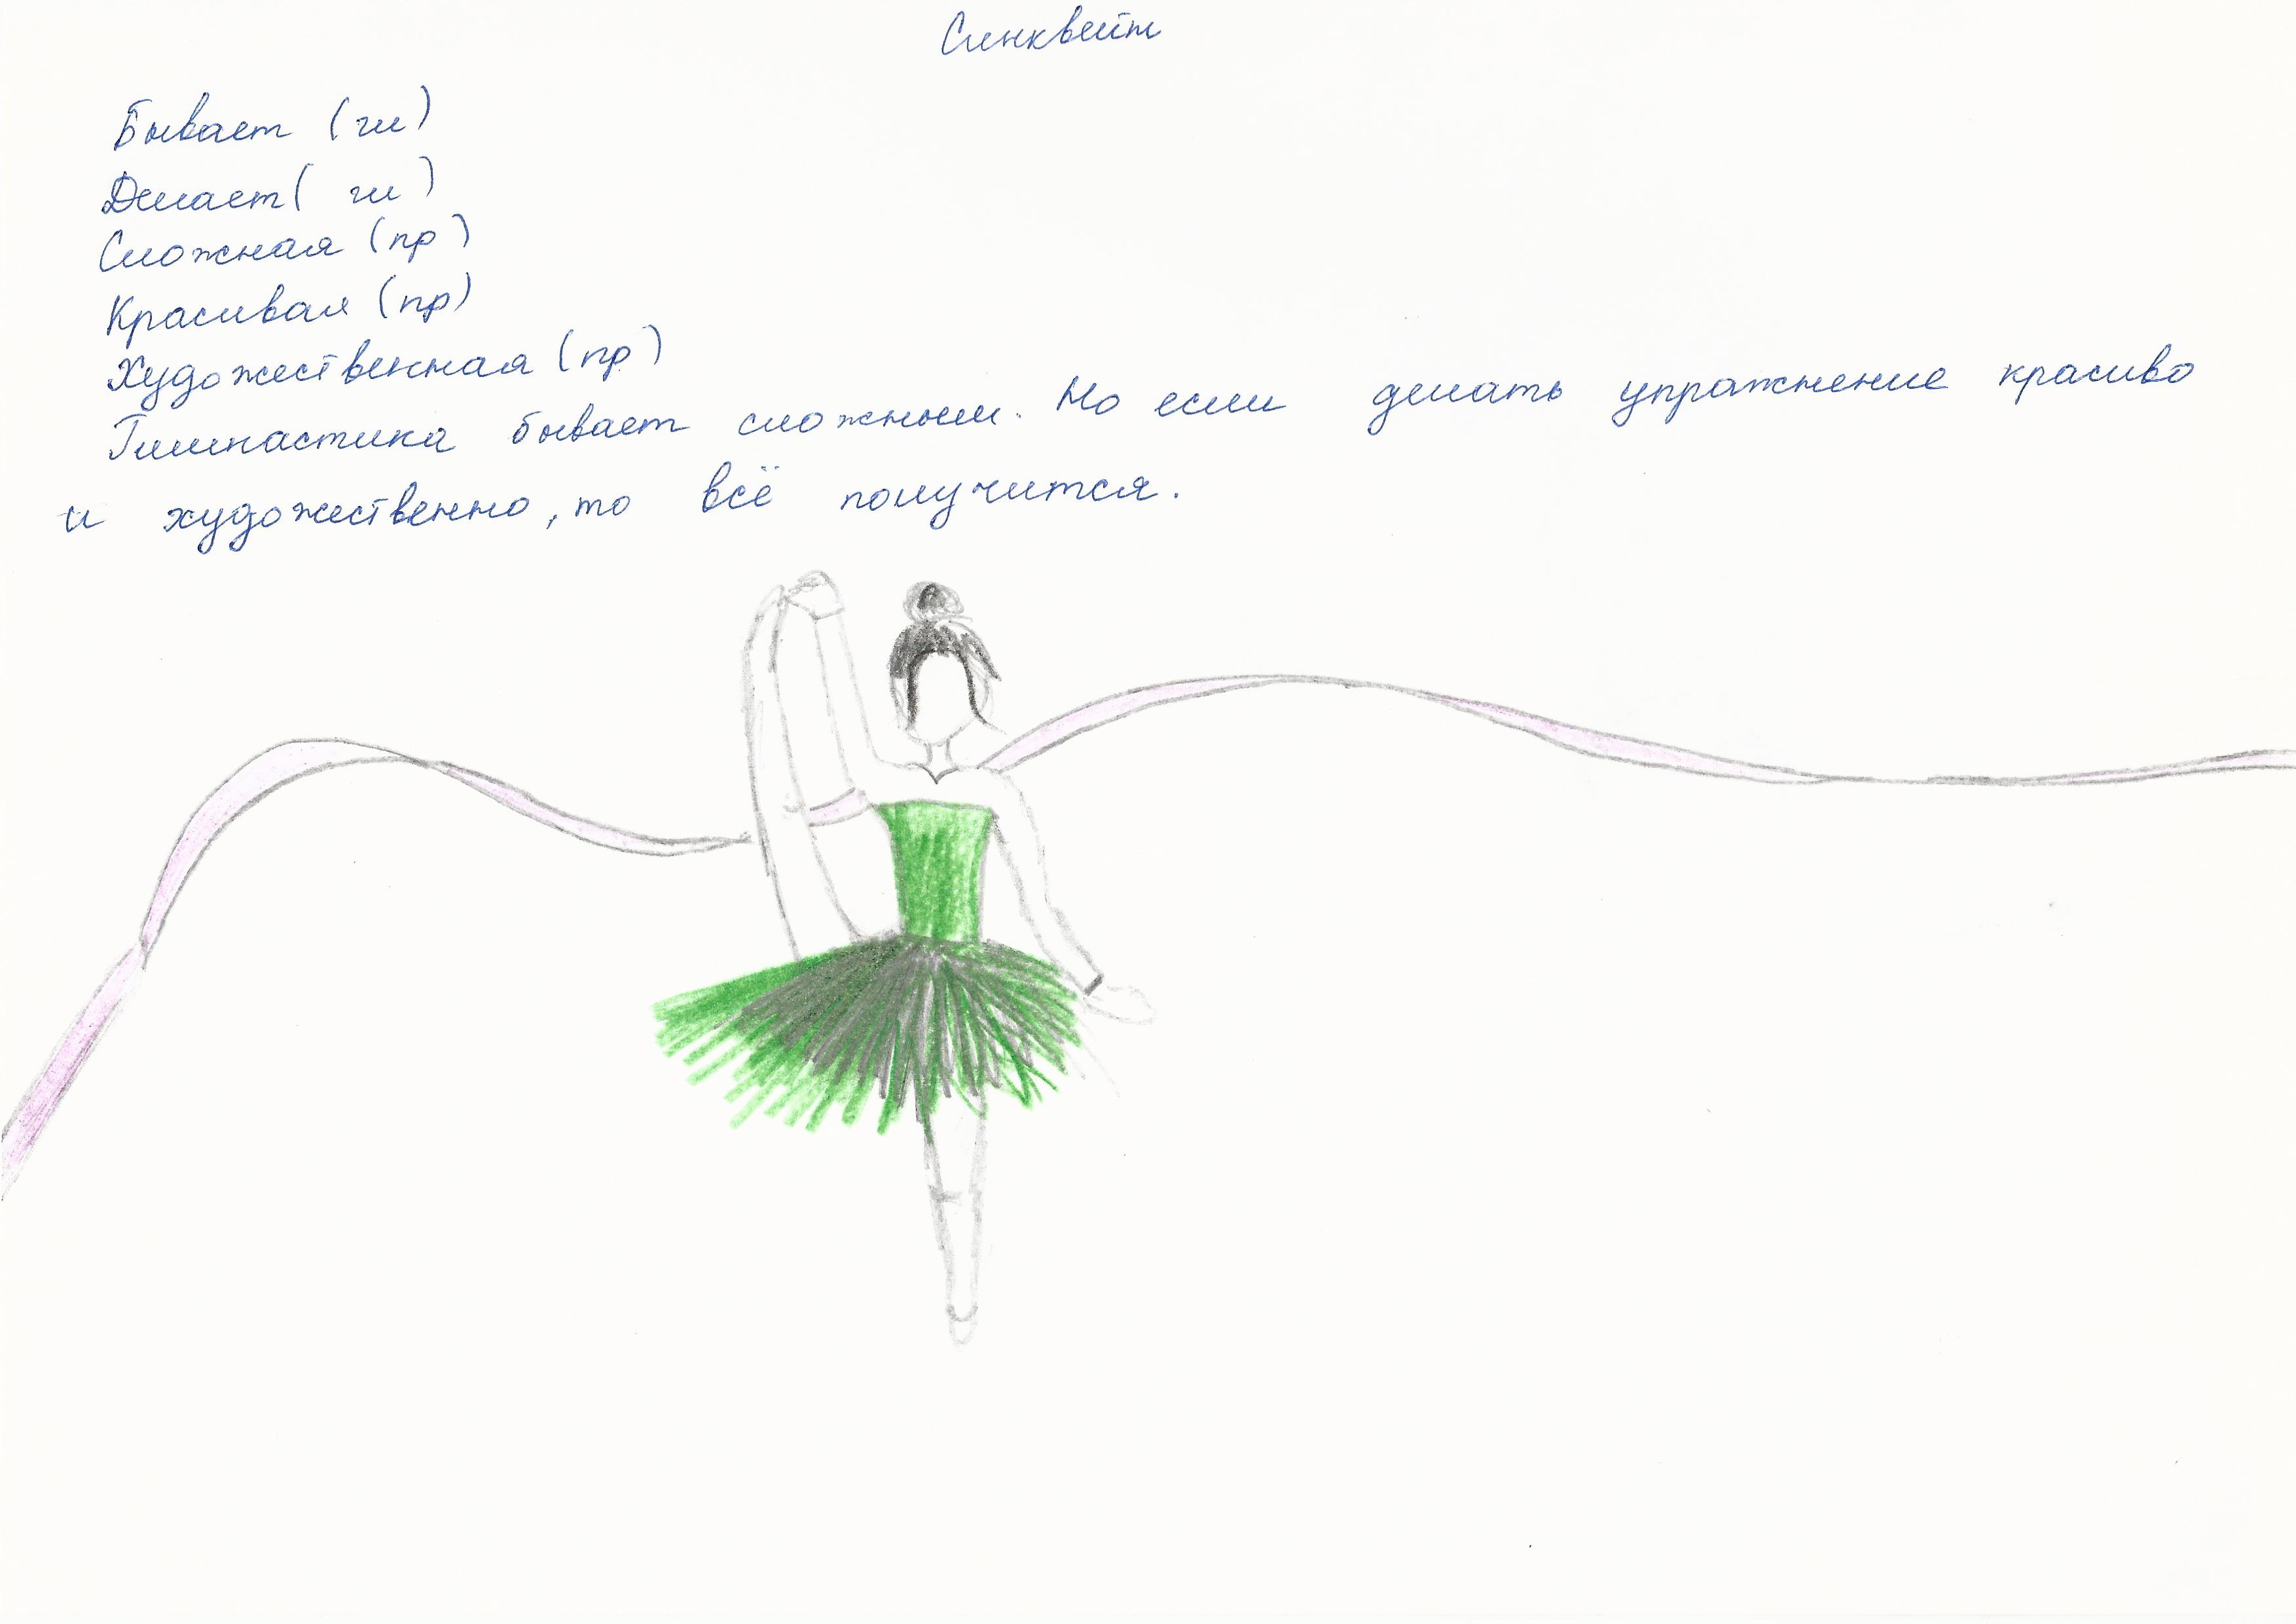 Синквейн
Бывает (гл)
Делает ( гл )
Сложная (пр )
Красивая (пр)
Художественная (пр)
Гимнастика бывает сложным. Но если делать упражнение красиво
и художественно, то всё получится.